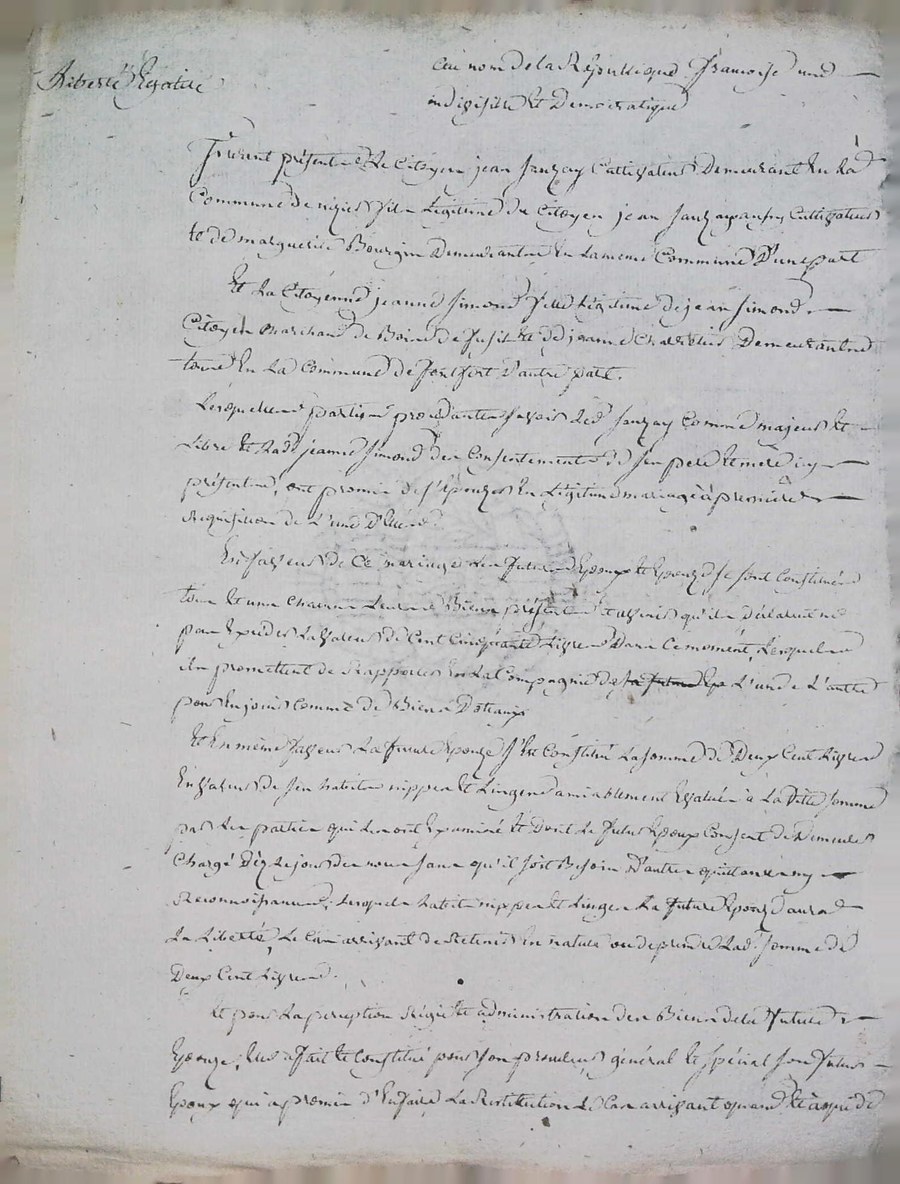 Liberté Egalité
Au nom de la République françoise une
indivisible et Democratique
Furent présents Le Citoyen jean Janzay Cultivateur Demeurant En la
Commune de fils Légitime du Citoyen jean Janzay Cultivateur
et de marguerite Bourgin Demeurants En la meme Commune D'une part
Et La Citoyenne jeanne Simond fille Légitime de jean Simond
Citoyen marchand de Bois de fusil et de jeanne Demeurants
tous En La Commune de fontfort D'autre part.
Lesquelles parties procédantes savoir Led. Janzay Comme majeur et
Libre et Lad. jeanne Simond du Consentement de Son pere et mere icy
présents, ont promis de s'épouzer En Légitime mariage à première
Requisition de L'une D'Elles.
En faveur de Ce mariage Les futurs Epoux et Epouze se sont Constitués
tous et uns Chacuns Leurs Biens présents et avenirs qu'ils déclarent ne
pas Exceder La valeur de Cent Cinquante Livres Dans Ce moment, Lesquels
ils promettent de Rapporter En La Compagnie de la future Ep L'un de L'autre
pour En jouir Comme de Biens Dotaux
Et En même faveur La future Epouze s'Est Constitué La somme de Deux Cent Livres
En valeur de Ses habits nippes et Linges amiablement Evalués à La Ditte somme
par Les parties qui Les ont Examiné Et Dont Le futur Epoux Consent de Demeurer
Chargé Dez Le jour des noces sans qu'il soit Besoin D'autre quittance ny
Reconnoissance, Lesquels habits nippes et Linges La future Epouze aura
La Liberté, Le Cas arrivant de Retenir En nature ou de prendre Lad. somme de
Deux Cent Livres.
Et pour La perception Régie et administration des Biens de la future
Epouze, Elle a fait et Constitué pour son procureur général et spécial son futur
Epoux qui a promis d'En faire La Restitution Le Cas arrivant quand et à qui de